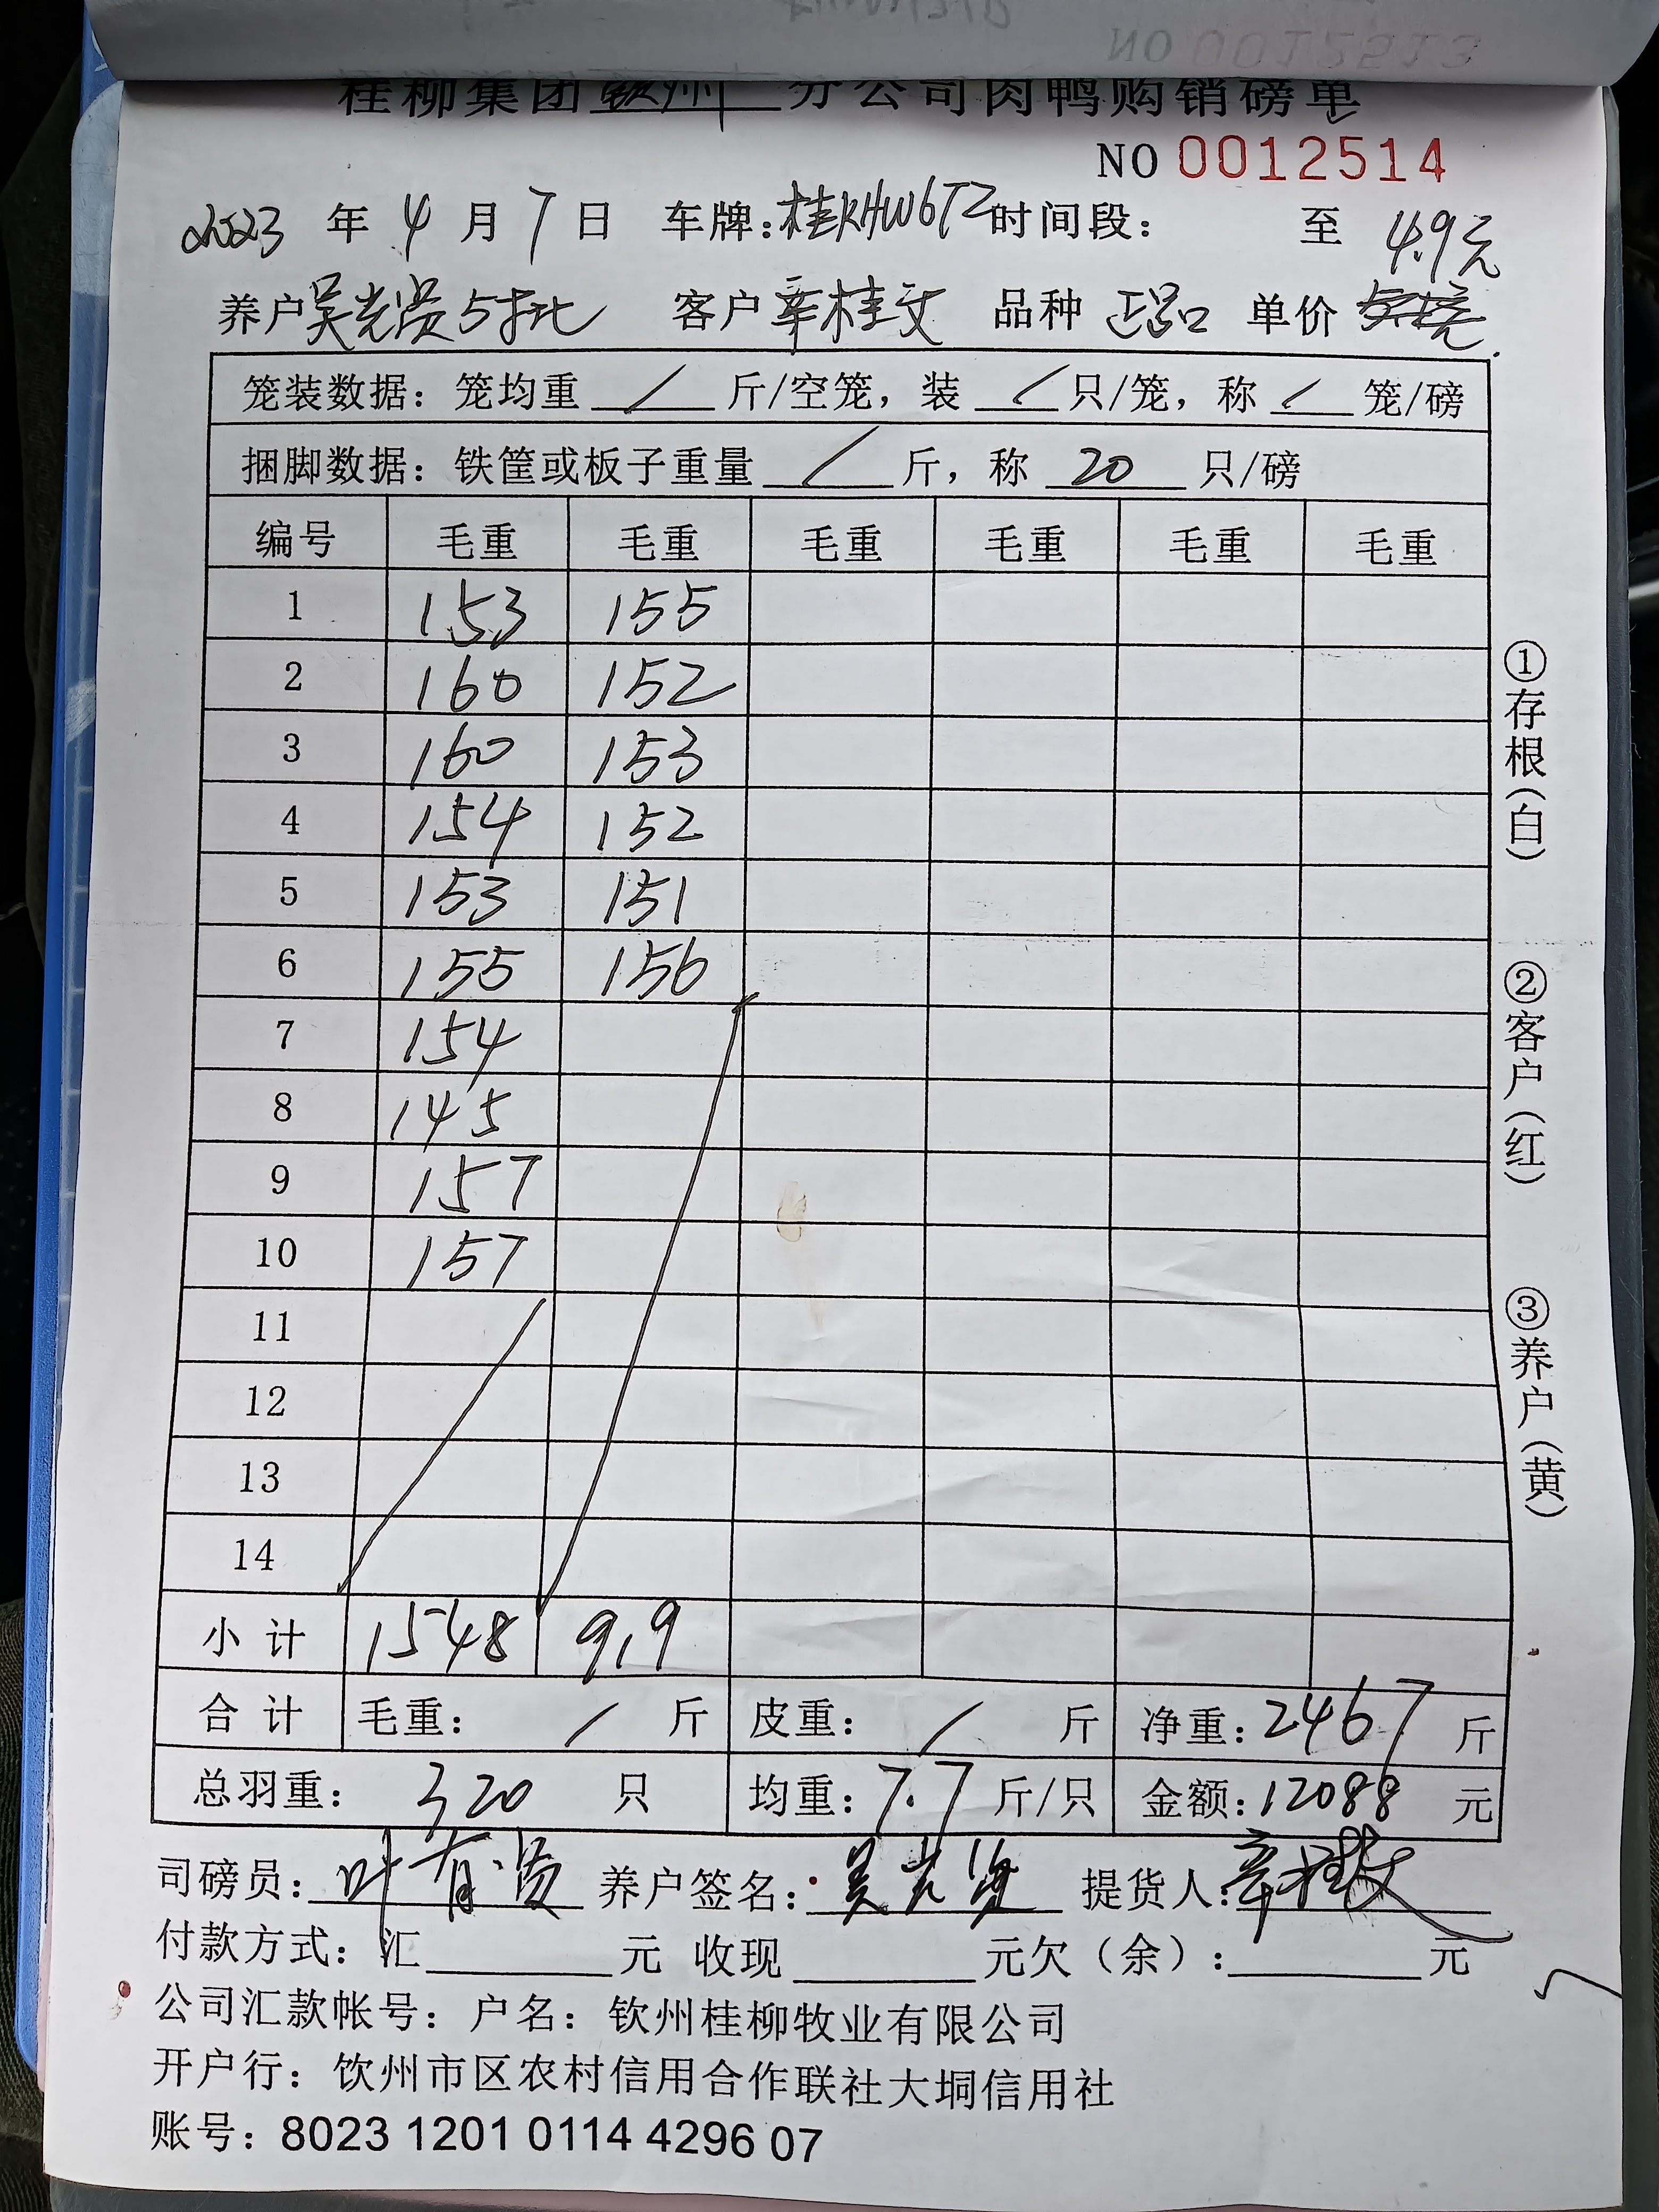 NO 0012513
桂柳集团钦州分公司肉鸭购销磅单
NO 0012514
2023年4月7日 车牌:桂KHW6TZ 时间段: 至 4.9元
养户 吴光贤5批 客户 辛桂文 品种 正品 单价
笼装数据: 笼均重 / 斤/空笼, 装 / 只/笼, 称 / 笼/磅
捆脚数据: 铁筐或板子重量 / 斤, 称 20 只/磅
编号 毛重 毛重 毛重 毛重 毛重 毛重
1 153 155
2 160 152
3 160 153
4 154 152
5 153 151
6 155 156
7 154
8 145
9 157
10 157
11
12
13
14
小计 1548 919
合计 毛重: / 斤 皮重: / 斤 净重: 2467 斤
总羽重: 320 只 均重: 7.7 斤/只 金额: 12088 元
司磅员: 叶有贤 养户签名: 吴光贤 提货人: 辛桂文
付款方式: 汇 元 收现 元欠(余): 元
公司汇款帐号: 户名: 钦州桂柳牧业有限公司
开户行: 钦州市区农村信用合作联社大垌信用社
账号: 8023 1201 0114 4296 07
①存根(白)
②客户(红)
③养户(黄)